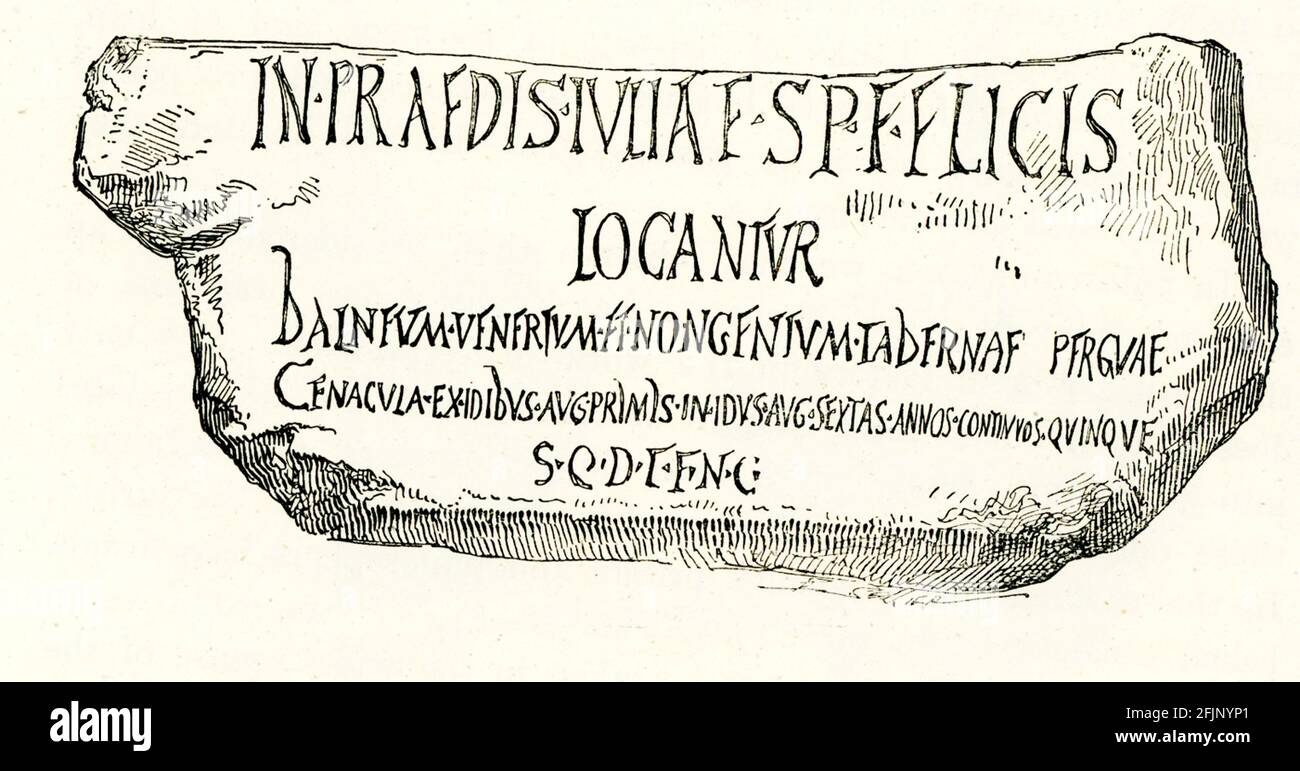 IN·PRAEDIS·IVLIAE·SP·F·FELICIS
LOCANTVR
BALNEVM·VENERIVM·ET·NONGENTVM·TABERNAE PERGVAE
CENACVLA·EX·IDIBVS·AVG·PRIMIS·IN·IDVS·AVG·SEXTAS·ANNOS·CONTINVOS·QVINQVE
S·Q·D·L·E·N·C·
alamy
Image ID: 2FJNYP1
www.alamy.com